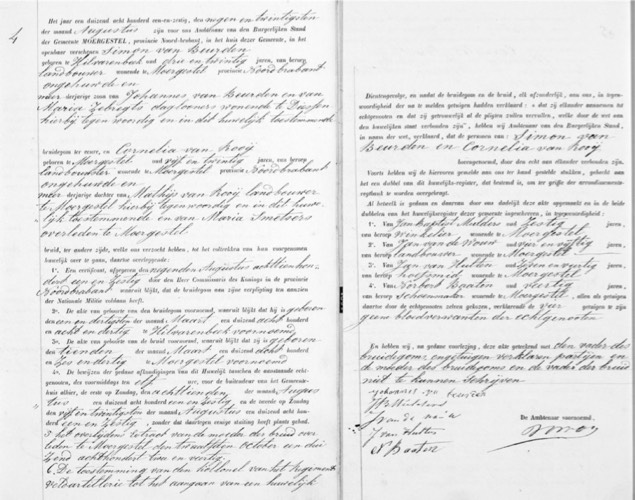 4
Het jaar een duizend acht honderd een-en-zestig, den negen en twintigsten
der maand Augustus zijn voor ons Ambtenaar van den Burgerlijken Stand
der Gemeente MOERGESTEL, provincie Noord-brabant, in het huis dezer Gemeente, in het
openbaar verschenen Simon van Beurden
geboren te Hilvarenbeek oud drie en twintig jaren, van beroep
landbouwer wonende te Moergestel provincie Noordbrabant
ongehuwde en
meerderjarige zoon van Johannes van Beurden en van
Maria daglooners wonende te Diessen
hierbij tegenwoordig en in dit huwelijk toestemmende
bruidegom ter eenre, en Cornelia van Rooij
geboren te Moergestel oud vijf en twintig jaren, van beroep
landbouwster wonende te Moergestel provincie Noordbrabant
ongehuwde en
meerderjarige dochter van Mathijs van Rooij landbouwer
te Moergestel hierbij tegenwoordig en in dit huwe-
lijk toestemmende en van Maria Smetsers
overleden te Moergestel
bruid, ter andere zijde, welke ons verzocht hebben, tot het voltrekken van hun voorgenomen
huwelijk over te gaan, daartoe overleggende:
1°. Een certificaat, afgegeven den negenden Augustus achttien hon-
derd een en zestig door den Heer Commissaris des Konings in de provincie
Noordbrabant waaruit blijkt, dat de bruidegom aan zijne verpligting ten aanzien
der Nationale Militie voldaan heeft.
2°. de akte van geboorte van den bruidegom voornoemd, waaruit blijkt dat hij is geboren
den een en dertigsten Maart een duizend acht honderd
en acht en dertig te Hilvarenbeek voornoemd
3°. de akte van geboorte van de bruid voornoemd, waaruit blijkt dat zij is geboren
den tienden der maand Maart een duizend acht honderd
en zes en dertig te Moergestel voornoemd
4°. de bewijzen der gedane afkondigingen van dit Huwelijk tusschen de aanstaande echt-
genooten, des voormiddags ten elf ure, voor de buitendeur van het Gemeente-
huis alhier, de eerste op Zondag, den achttienden der maand Augus-
tus een duizend acht honderd een en zestig en de tweede op Zondag
den vijf en twintigsten der maand Augustus een duizend acht hon-
derd een en zestig zonder dat daartegen eenige stuiting heeft plaats gehad.
5 het overlijdens extract van de moeder der bruid over-
leden te Moergestel den October een dui-
zend achthonderd twee en veertig
6. De toestemming van den kolonel van het Regement
artillerie tot het aangaan van een huwelijk
Dientengevolge, en nadat de bruidegom en de bruid, elk afzonderlijk, aan ons, in tegen-
woordigheid der na te melden getuigen hadden verklaard: « dat zij elkander aannamen tot
echtgenooten en dat zij getrouwelijk al de pligten zullen vervullen, welke door de wet aan
den huwelijken staat verbonden zijn », hebben wij Ambtenaar van den Burgerlijken Stand,
in naam der wet, verklaard, dat de personen van Simon van
Beurden en Cornelia van Rooij
hovengenoemd, door den echt aan elkander verbonden zijn.
Voorts hebben wij de hiervoren gemelde aan ons ter hand gestelde stukken, gehecht aan
het een dubbel van dit huwelijks-register, dat bestemd is, om ter griffie der arrondissements-
regtbank te worden overgebragt.
Al hetwelk is gedaan en daarvan door ons dadelijk deze akte opgemaakt en in de beide
dubbelen van het huwelijksregister dezer gemeente ingeschreven, in tegenwoordigheid:
1°. Van Jan baptist Mulders zestig jaren,
van beroep winkelier wonende te Moergestel
2°. Van Jan van de Wouw oud vier en vijftig jaren,
van beroep landbouwer wonende te Moergestel
3°. Van Jan van Hulten oud zeven en veertig jaren,
van beroep hoefsmid wonende te Moergestel
4°. Van Norbert Baaten oud veertig jaren,
van beroep schoenmaker wonende te Moergestel, allen als getuigen
daartoe door de echtgenooten zelven gekozen, verklarende de vier getuigen te zijn
geene bloedverwanten der echtgenooten
En hebben wij, na gedane voorlezing, deze akte geteekend met den vader des
bruidegoms, en getuigen verklaren partijen en
de moeder des bruidegoms en de vader der bruid
niet te kunnen schrijven
Johannes van Beurden
J B Mulders
J van Hulten
N Baaten
De Ambtenaar voornoemd,